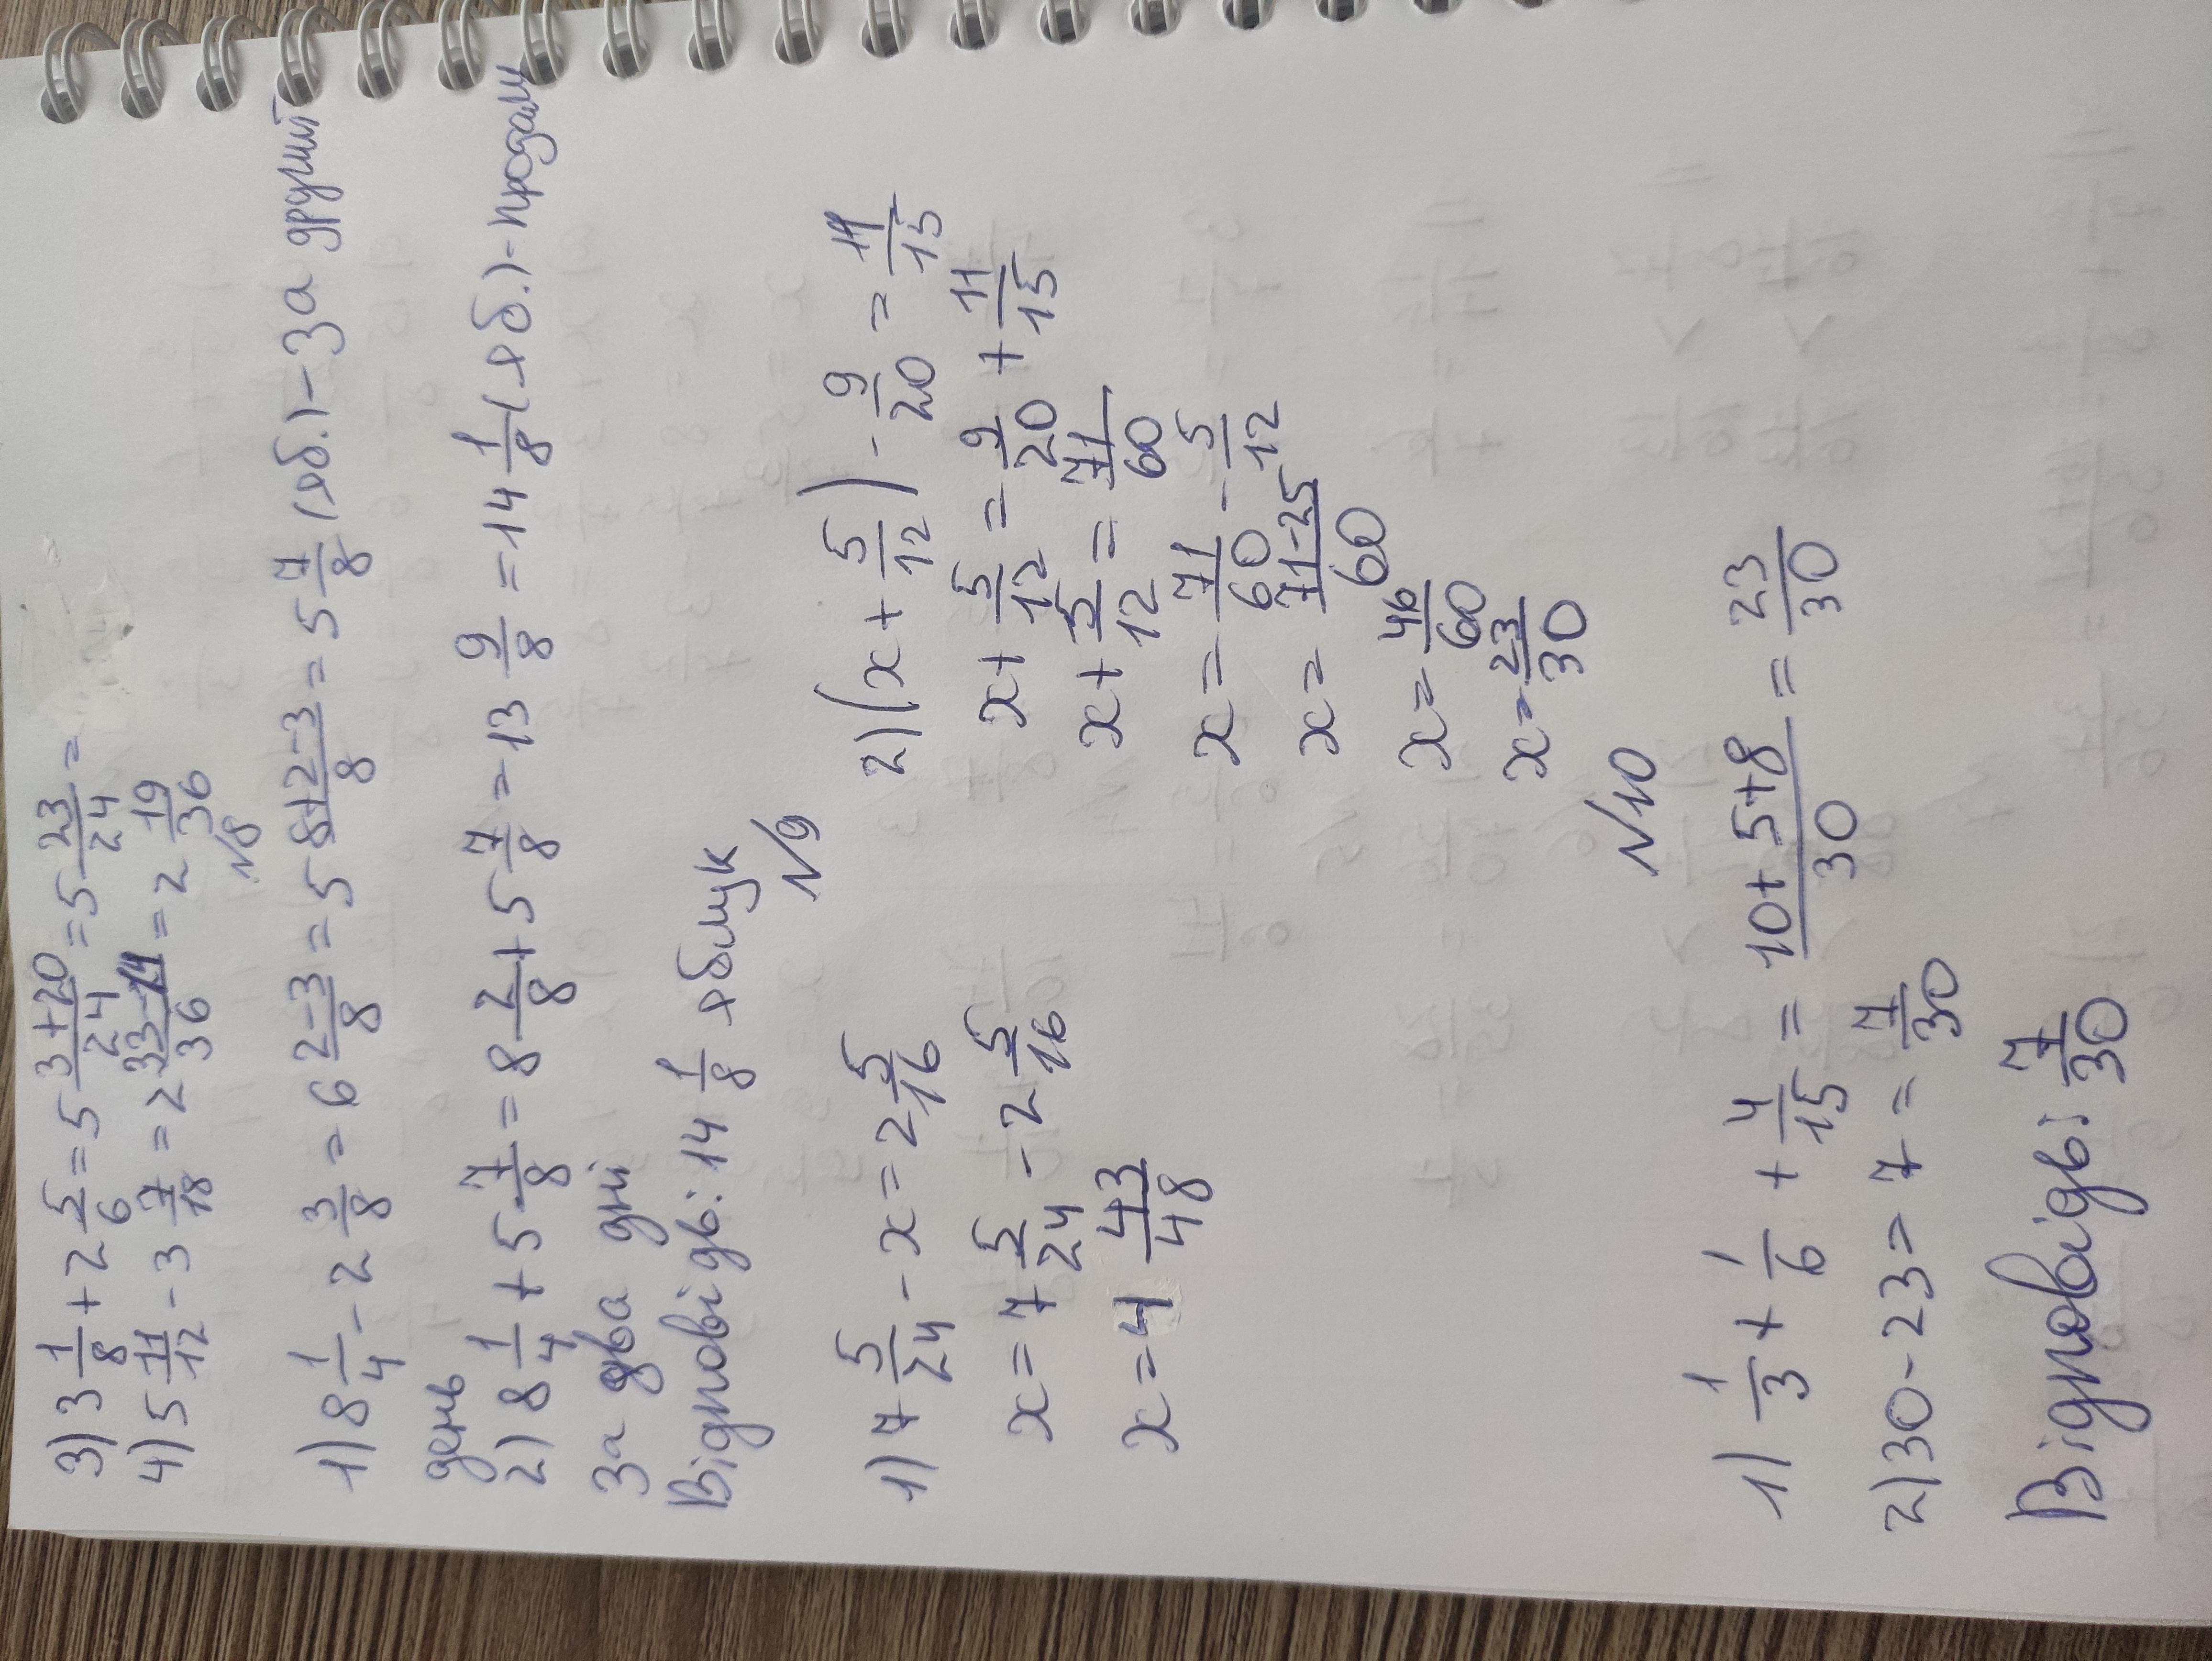 3) 3 1/8 + 2 5/6 = 5 3+20/24 = 5 23/24 =
4) 5 11/12 - 3 7/18 = 2 33-14/36 = 2 19/36
N8
1) 8 1/4 - 2 3/8 = 6 2-3/8 = 5 8+2-3/8 = 5 7/8 (яб.) - За другий
день
2) 8 1/4 + 5 7/8 = 8 2/8 + 5 7/8 = 13 9/8 = 14 1/8 (яб.) - продали
За два дні
Відповідь: 14 1/8 яблук
N9
1) 7 5/24 - x = 2 5/16
x = 7 5/24 - 2 5/16
x = 4 43/48
2) (x + 5/12) - 9/20 = 11/15
x + 5/12 = 9/20 + 11/15
x + 5/12 = 71/60
x = 71/60 - 5/12
x = 71-25/60
x = 46/60
x = 23/30
N10
1) 1/3 + 1/6 + 4/15 = 10+5+8/30 = 23/30
2) 30 - 23 = 7 = 7/30
Відповідь: 7/30